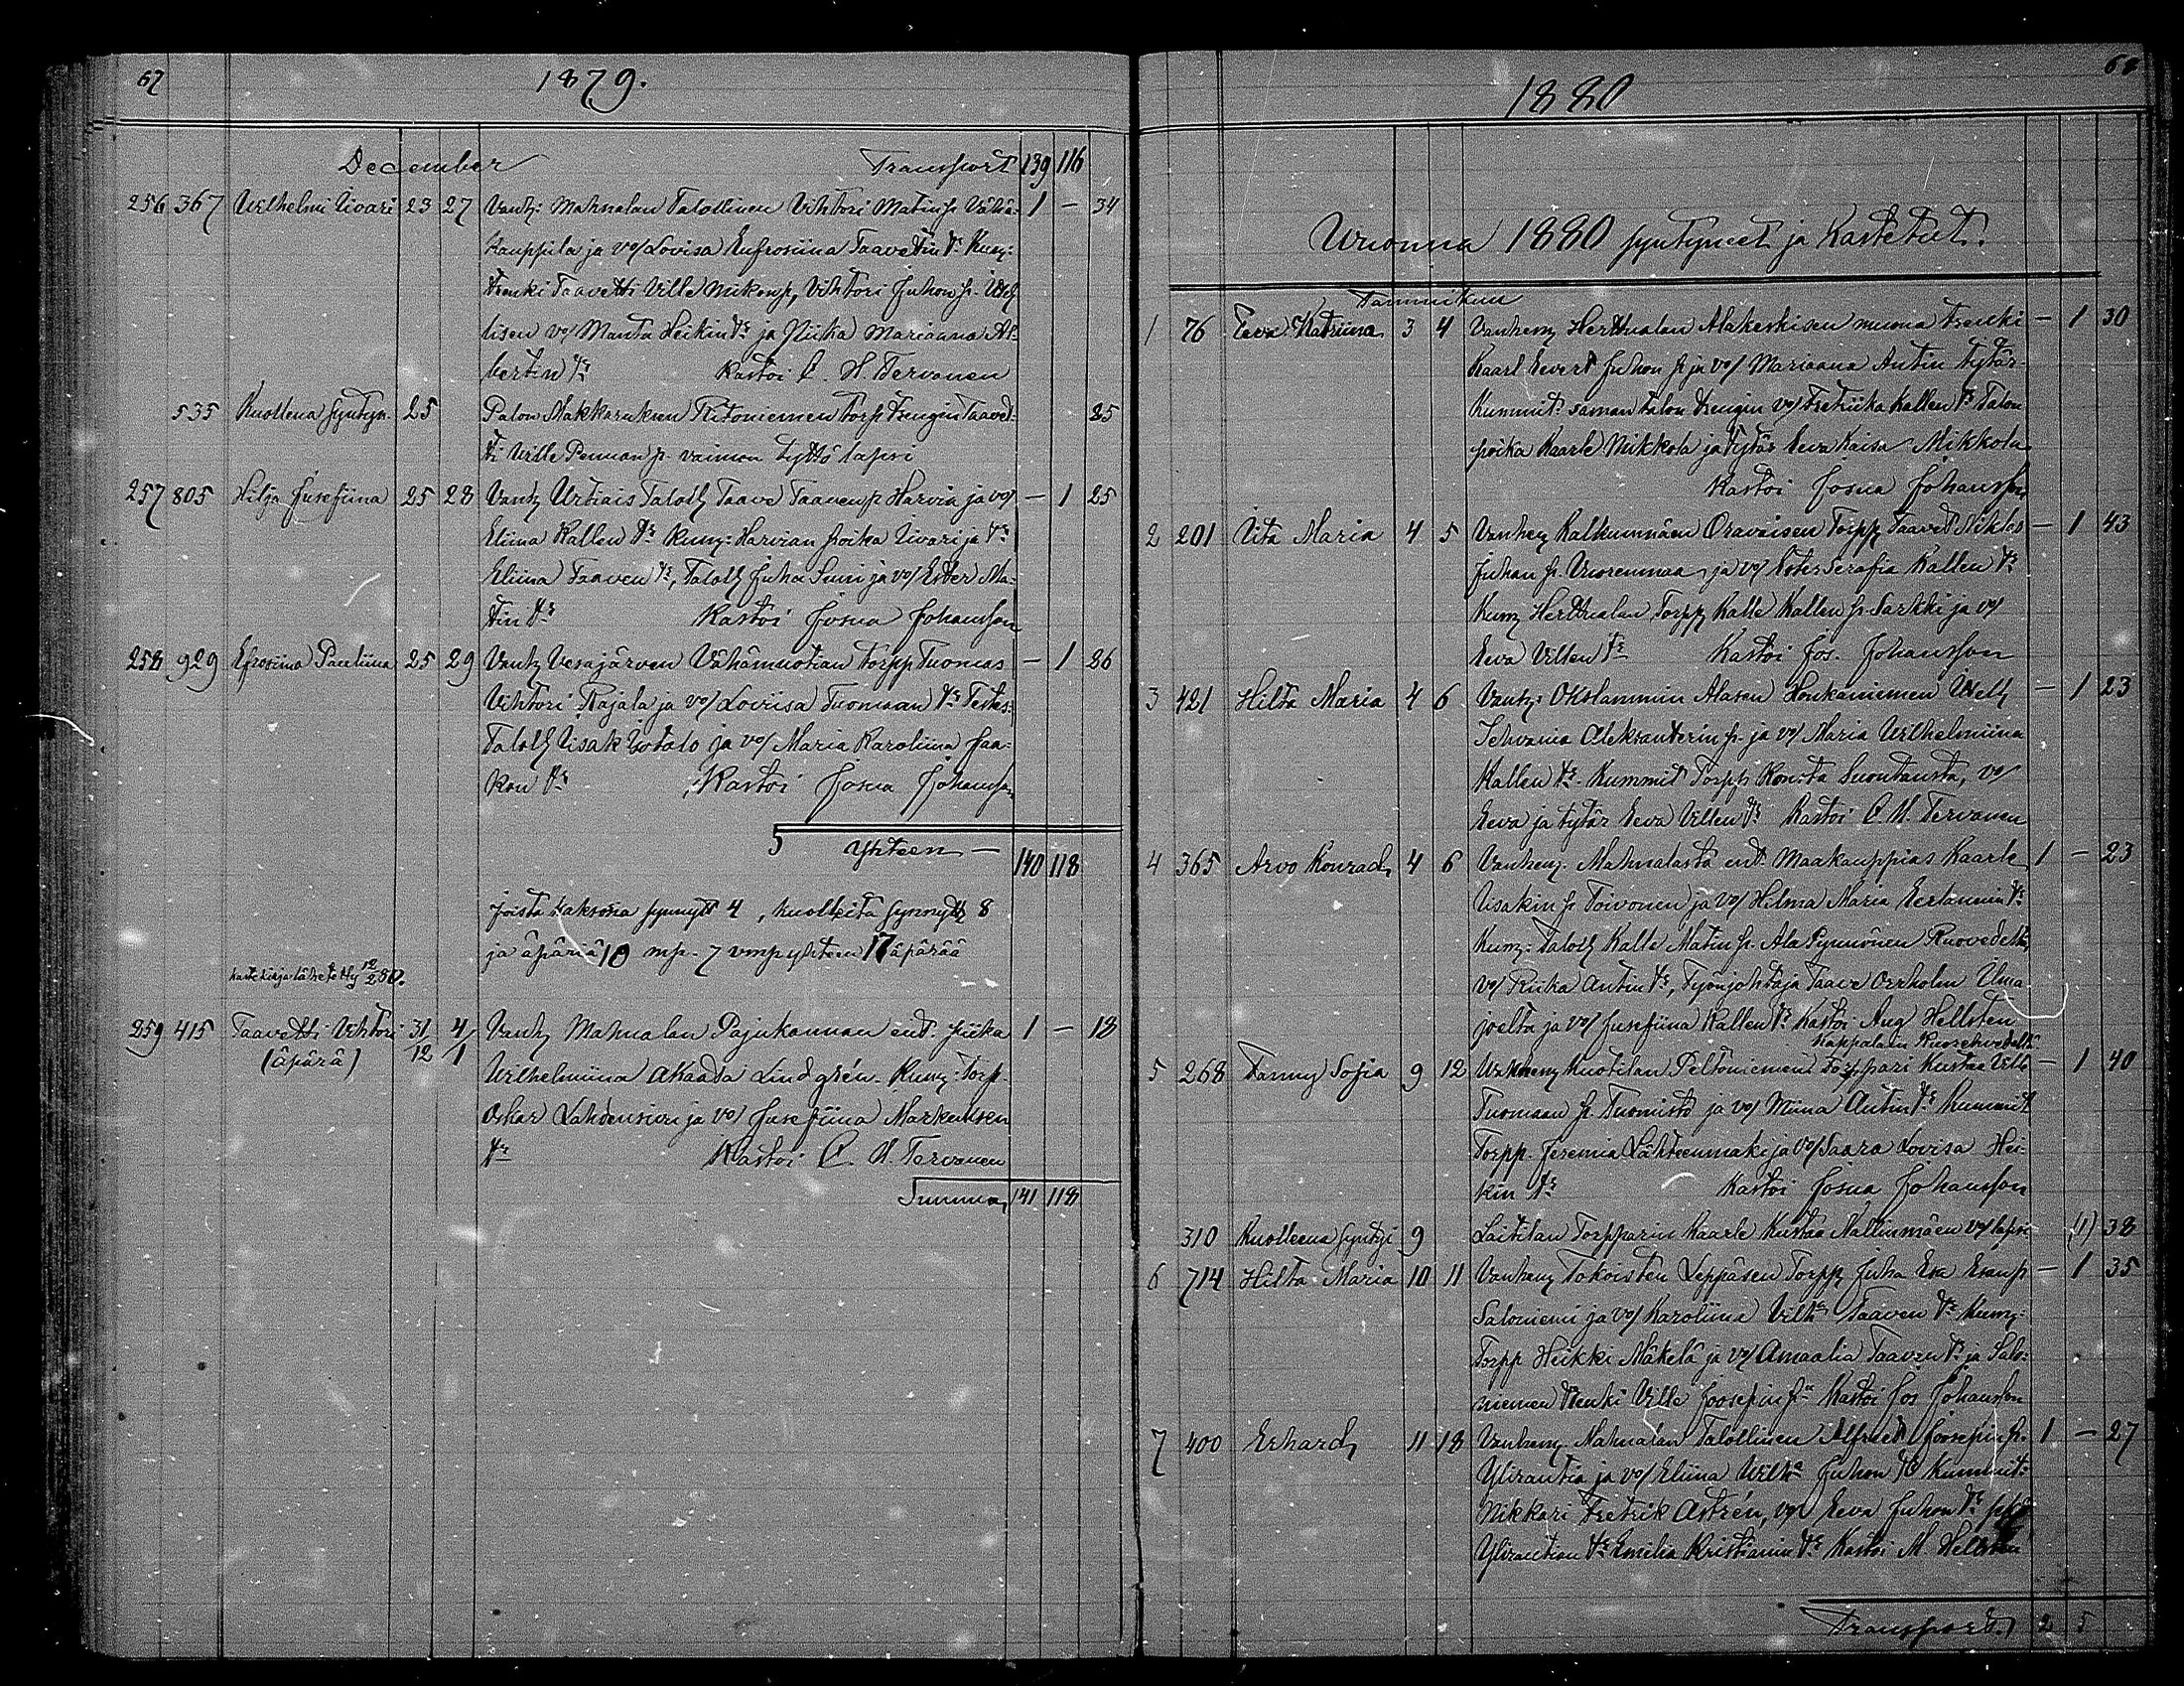 67
1879.
December Transport 139 116
256 367 Vilhelmi Iivari 23 27 Vanh: Mahnalan Talollinen Vihtori Matin p. Vähä- 1 — 34
Kauppila ja vo/ Lovisa Eufrosiina Taavetin tr Kum:
trenki Taavetti Ville Mikon p, Vihtori Juhon p.
lisen vo/ Manta Heikin tr ja Piika Marianna Al-
bertin tr Kastoi C. H. Tervonen
535 Kuollena syntyn. 25 Palon Makkarukun Ritoniemen torp trengin Taavet- 25
ti Ville Pennan p. vaimon tyttö lapsi
257 805 Hilja Jusefiina 25 28 Vanh Urtiais Taloll Taave Taaven p Harvia ja vo/ — 1 25
Eliina Kallen tr Kum: Harvian poika Iivari ja tr
Eliina Taaven tr, Taloll Juha Suni ja vo/ Ester Ma-
tin tr Kastoi Josua Johansson
258 929 Efrosiina Pauliina 25 29 Vanh Vesajärven Vähämuotian torpp Tuomas — 1 26
Vihtori Rajala ja vo/ Loviisa Tuomaan tr Testes:
Taloll Iisak Isotalo ja vo/ Maria Karoliina Jaa-
kon tr Kastoi Josua Johansson
Yhteen — 140 118
joista kaksosia synnytt 4, kuolleita synnytt 8
ja äpäriä 10 mp. 7 vmp yhteen 17 äpärää
kastekirja lähetetty 12/2 80.
259 415 Taavetti Vihtori 31/12 4/1 Vanh Mahnalan Pajukannan ent. piika 1 — 18
(äpärä) Vilhelmiina Akaada Lindgrén. Kum: Torp.
Oskar Lahdensivu ja vo/ Jusefiina Markuksen
tr Kastoi C. H. Tervonen
Summa 141 118
68
1880
Vuonna 1880 syntyneet ja Kastetut.
Tammikuu
1 76 Eeva Katriina 3 4 Vanhem Herttualan Alakeskisen muona trenki — 1 30
Kaarl Evert Juhon p ja vo/ Mariaana Antin tytär
Kummit: saman talon trengin vo/ Fretriika Kallen tr Talon
poika Kaarle Mikkola ja tytär Eeva Kaisa Mikkola
Kastoi Josua Johansson
2 201 Iita Maria 4 5 Vanhem Kalkunmäen Oravaisen Torpp Taavet Niklas — 1 43
Juhan p. Vuorenmaa ja vo/ Serafia Kallen tr
Kum Herttualan Torpp Kalle Kallen p. Sarkki ja vo/
Eeva Villen tr Kastoi Jos. Johansson
3 421 Hilta Maria 4 6 Vanh: Okslammin Alasen Honkaniemen — 1 23
Tehvania Aleksanterin p. ja vo/ Maria Vilhelmiina
Kallen tr. Kummit Torpp Konsta Suontausta, vo/
Eeva ja tytär Eeva Villen tr Kastoi C. H. Tervonen
4 365 Arvo Konrad 4 6 Vanhem. Mahnalasta ent. Maakauppias Kaarle 1 — 23
Iisakin p. Toivonen ja vo/ Hilma Maria Eerlannin tr
Kum: Taloll Kalle Matin p. Ala Pynnönen Ruovedeltä,
vo/ Riika Antin tr, Työnjohtaja Taave Orrholm Ilma-
joelta ja vo/ Jusefiina Kallen tr Kastoi Aug Hellsten
kappalain Kuorehvedeltä
5 268 Fanny Sofia 9 12 Vanhem Kuotilan Peltoniemen Torppari Kustaa Ville — 1 40
Tuomaan p. Tuomisto ja vo/ Miina Antin tr Kummit
Torpp. Jeremia Lähteenmäki ja vo/ Saara Lovisa Hei-
kin tr Kastoi Josua Johansson
310 Kuolleena syntyi 9 Laitilan Torpparin Kaarle Kustaa Mallinmäen vo/ lapsi (1) 38
6 714 Hilta Maria 10 11 Vanhem Tokoisten Leppäsen Torpp Juha Esa Esan p — 1 35
Saloniemi ja vo/ Karoliina Vilh:a Taaven tr Kum:
Torpp Heikki Mäkelä ja vo/ Amaalia Taaven tr ja Salo-
niemen trenki Ville Joosepin p. Kastoi Jos Johansson
7 400 Erhard 11 18 Vanhem. Mahnalan Talollinen Alfred Joosepin p. 1 — 27
Ylirantia ja vo/ Eliina Vilh:a Juhon tr Kummit:
Nikkari Fretrik Astrén, vo/ Eeva Juhon tr
Ylirantian tr Emilia Kristianin tr Kastoi M Hellsten
Transport. 2 5